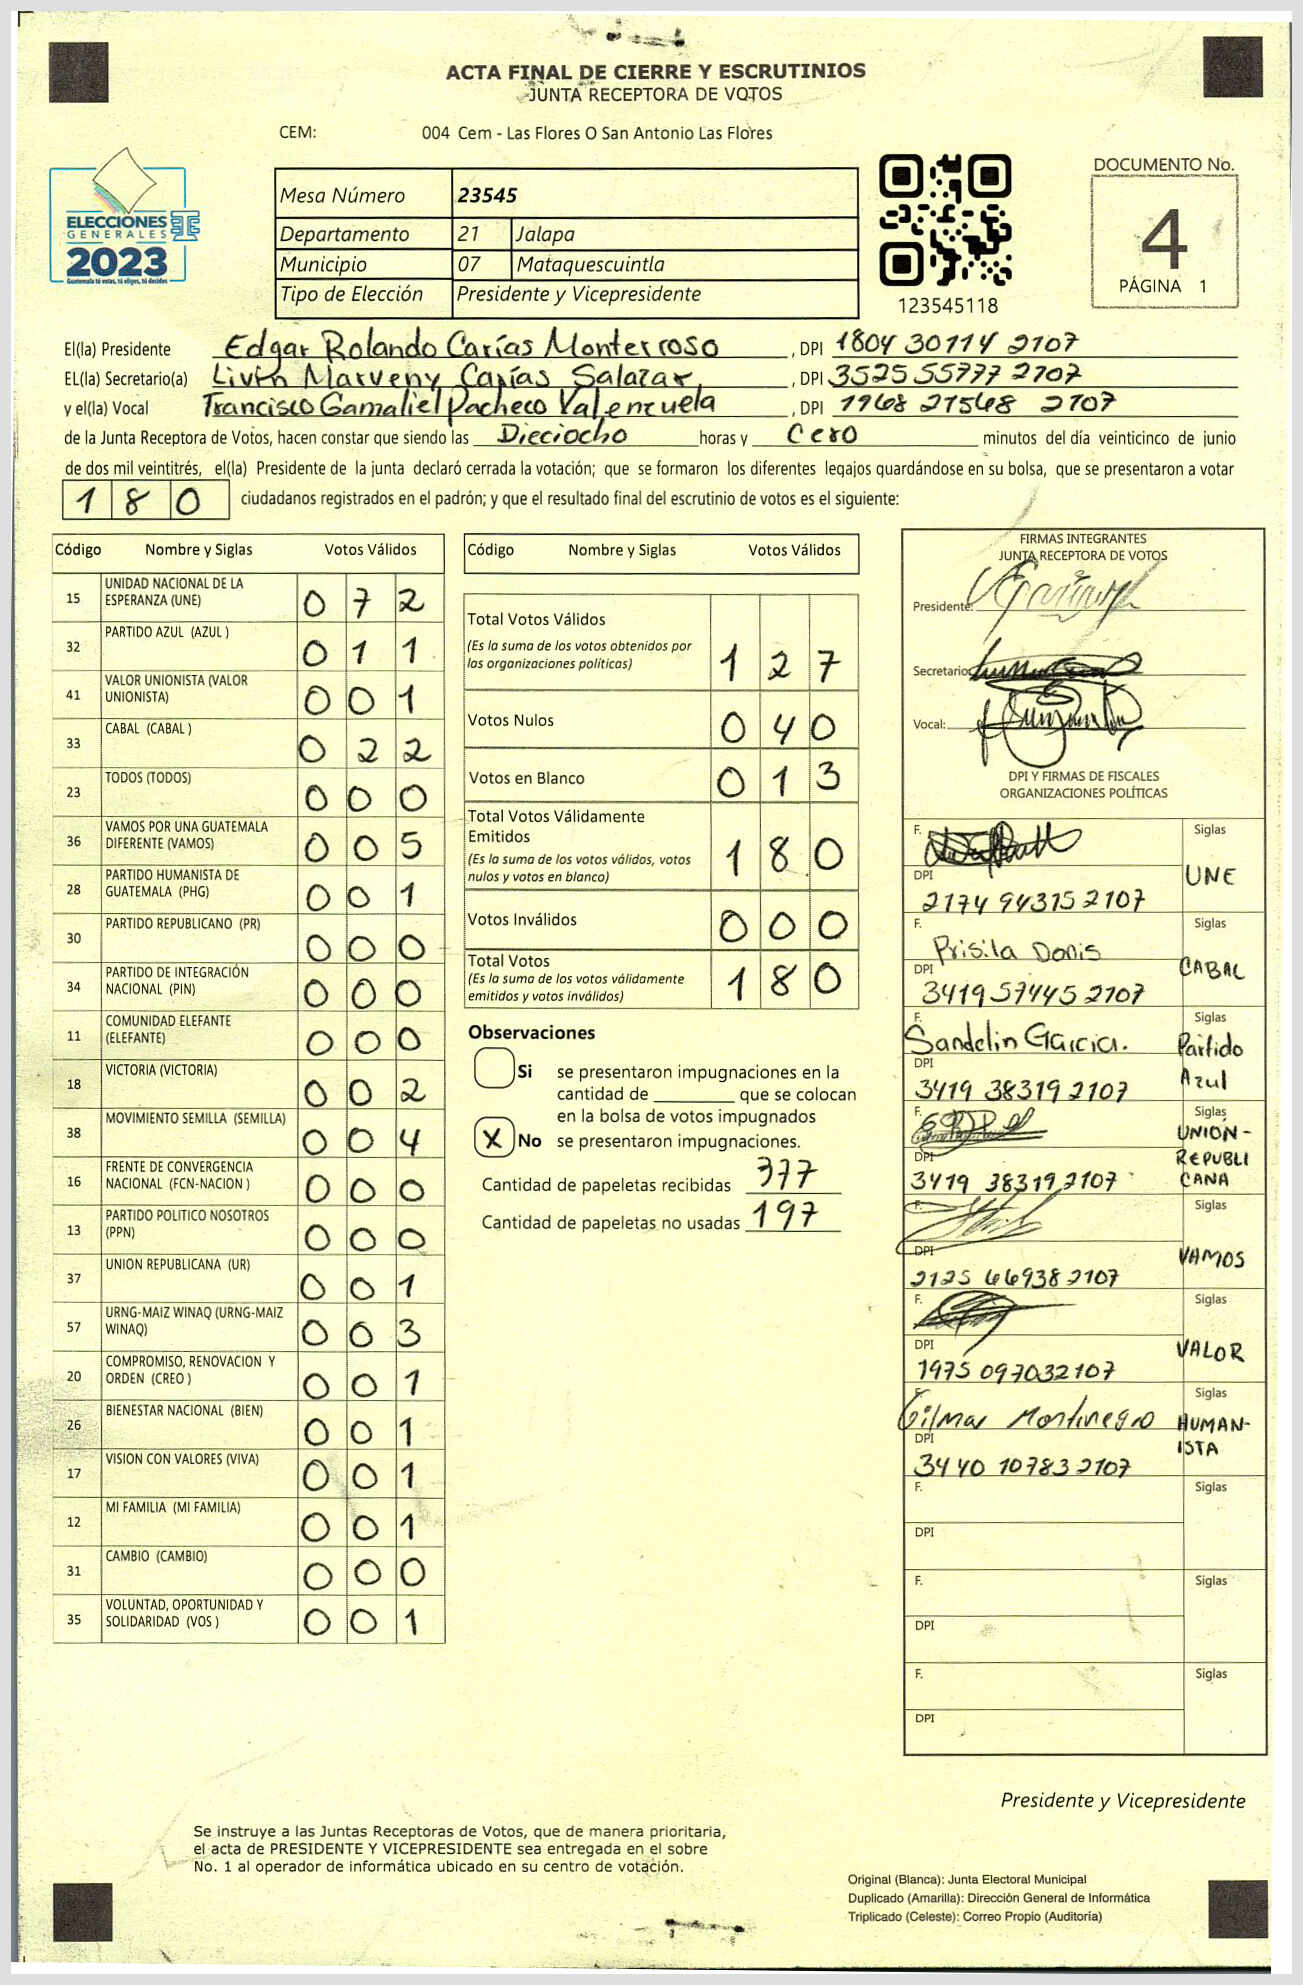 ACTA FINAL DE CIERRE Y ESCRUTINIOS
JUNTA RECEPTORA DE VOTOS
CEM: 004 Cem - Las Flores O San Antonio Las Flores
ELECCIONES
GENERALES
2023
Guatemala tú votas, tú eliges, tú decides
Mesa Número 23545
Departamento 21 Jalapa
Municipio 07 Mataquescuintla
Tipo de Elección Presidente y Vicepresidente
123545118
DOCUMENTO No.
4
PÁGINA 1
El(la) Presidente Edgar Rolando Carías Monterroso, DPI 1804 30114 2107
EL(la) Secretario(a) Livin Marveny Carías Salazar, DPI 3525 55777 2107
y el(la) Vocal Francisco Gamaliel Pacheco Valenzuela, DPI 1968 21568 2107
de la Junta Receptora de Votos, hacen constar que siendo las Dieciocho horas y Cero minutos del día veinticinco de junio
de dos mil veintitrés, el(la) Presidente de la junta declaró cerrada la votación; que se formaron los diferentes legajos guardándose en su bolsa, que se presentaron a votar
180 ciudadanos registrados en el padrón; y que el resultado final del escrutinio de votos es el siguiente:
Código Nombre y Siglas Votos Válidos
15 UNIDAD NACIONAL DE LA ESPERANZA (UNE) 0 7 2
32 PARTIDO AZUL (AZUL ) 0 1 1
41 VALOR UNIONISTA (VALOR UNIONISTA) 0 0 1
33 CABAL (CABAL ) 0 2 2
23 TODOS (TODOS) 0 0 0
36 VAMOS POR UNA GUATEMALA DIFERENTE (VAMOS) 0 0 5
28 PARTIDO HUMANISTA DE GUATEMALA (PHG) 0 0 1
30 PARTIDO REPUBLICANO (PR) 0 0 0
34 PARTIDO DE INTEGRACIÓN NACIONAL (PIN) 0 0 0
11 COMUNIDAD ELEFANTE (ELEFANTE) 0 0 0
18 VICTORIA (VICTORIA) 0 0 2
38 MOVIMIENTO SEMILLA (SEMILLA) 0 0 4
16 FRENTE DE CONVERGENCIA NACIONAL (FCN-NACION ) 0 0 0
13 PARTIDO POLITICO NOSOTROS (PPN) 0 0 0
37 UNION REPUBLICANA (UR) 0 0 1
57 URNG-MAIZ WINAQ (URNG-MAIZ WINAQ) 0 0 3
20 COMPROMISO, RENOVACION Y ORDEN (CREO ) 0 0 1
26 BIENESTAR NACIONAL (BIEN) 0 0 1
17 VISION CON VALORES (VIVA) 0 0 1
12 MI FAMILIA (MI FAMILIA) 0 0 1
31 CAMBIO (CAMBIO) 0 0 0
35 VOLUNTAD, OPORTUNIDAD Y SOLIDARIDAD (VOS ) 0 0 1
Código Nombre y Siglas Votos Válidos
Total Votos Válidos
(Es la suma de los votos obtenidos por
las organizaciones políticas) 1 2 7
Votos Nulos 0 4 0
Votos en Blanco 0 1 3
Total Votos Válidamente
Emitidos
(Es la suma de los votos válidos, votos
nulos y votos en blanco) 1 8 0
Votos Inválidos 0 0 0
Total Votos
(Es la suma de los votos válidamente
emitidos y votos inválidos) 1 8 0
Observaciones
Si se presentaron impugnaciones en la
cantidad de ________ que se colocan
en la bolsa de votos impugnados
X No se presentaron impugnaciones.
Cantidad de papeletas recibidas 377
Cantidad de papeletas no usadas 197
FIRMAS INTEGRANTES
JUNTA RECEPTORA DE VOTOS
Presidente:
Secretario:
Vocal:
DPI Y FIRMAS DE FISCALES
ORGANIZACIONES POLÍTICAS
F. Siglas
UNE
DPI
2174 94315 2107
F. Prisila Donis Siglas
CABAL
DPI
3419 57445 2107
F. Sandelin Garcia. Siglas
Partido Azul
DPI
3419 38319 2107
F. Siglas
UNIÓN-
REPUBLI
CANA
DPI
3419 38319 2107
F. Siglas
VAMOS
DPI
2125 66938 2107
F. Siglas
VALOR
DPI
1975 09703 2107
F. Gilmar Montenegro Siglas
HUMAN-
ISTA
DPI
3440 10783 2107
F. Siglas
DPI
F. Siglas
DPI
F. Siglas
DPI
Presidente y Vicepresidente
Se instruye a las Juntas Receptoras de Votos, que de manera prioritaria,
el acta de PRESIDENTE Y VICEPRESIDENTE sea entregada en el sobre
No. 1 al operador de informática ubicado en su centro de votación.
Original (Blanca): Junta Electoral Municipal
Duplicado (Amarilla): Dirección General de Informática
Triplicado (Celeste): Correo Propio (Auditoría)